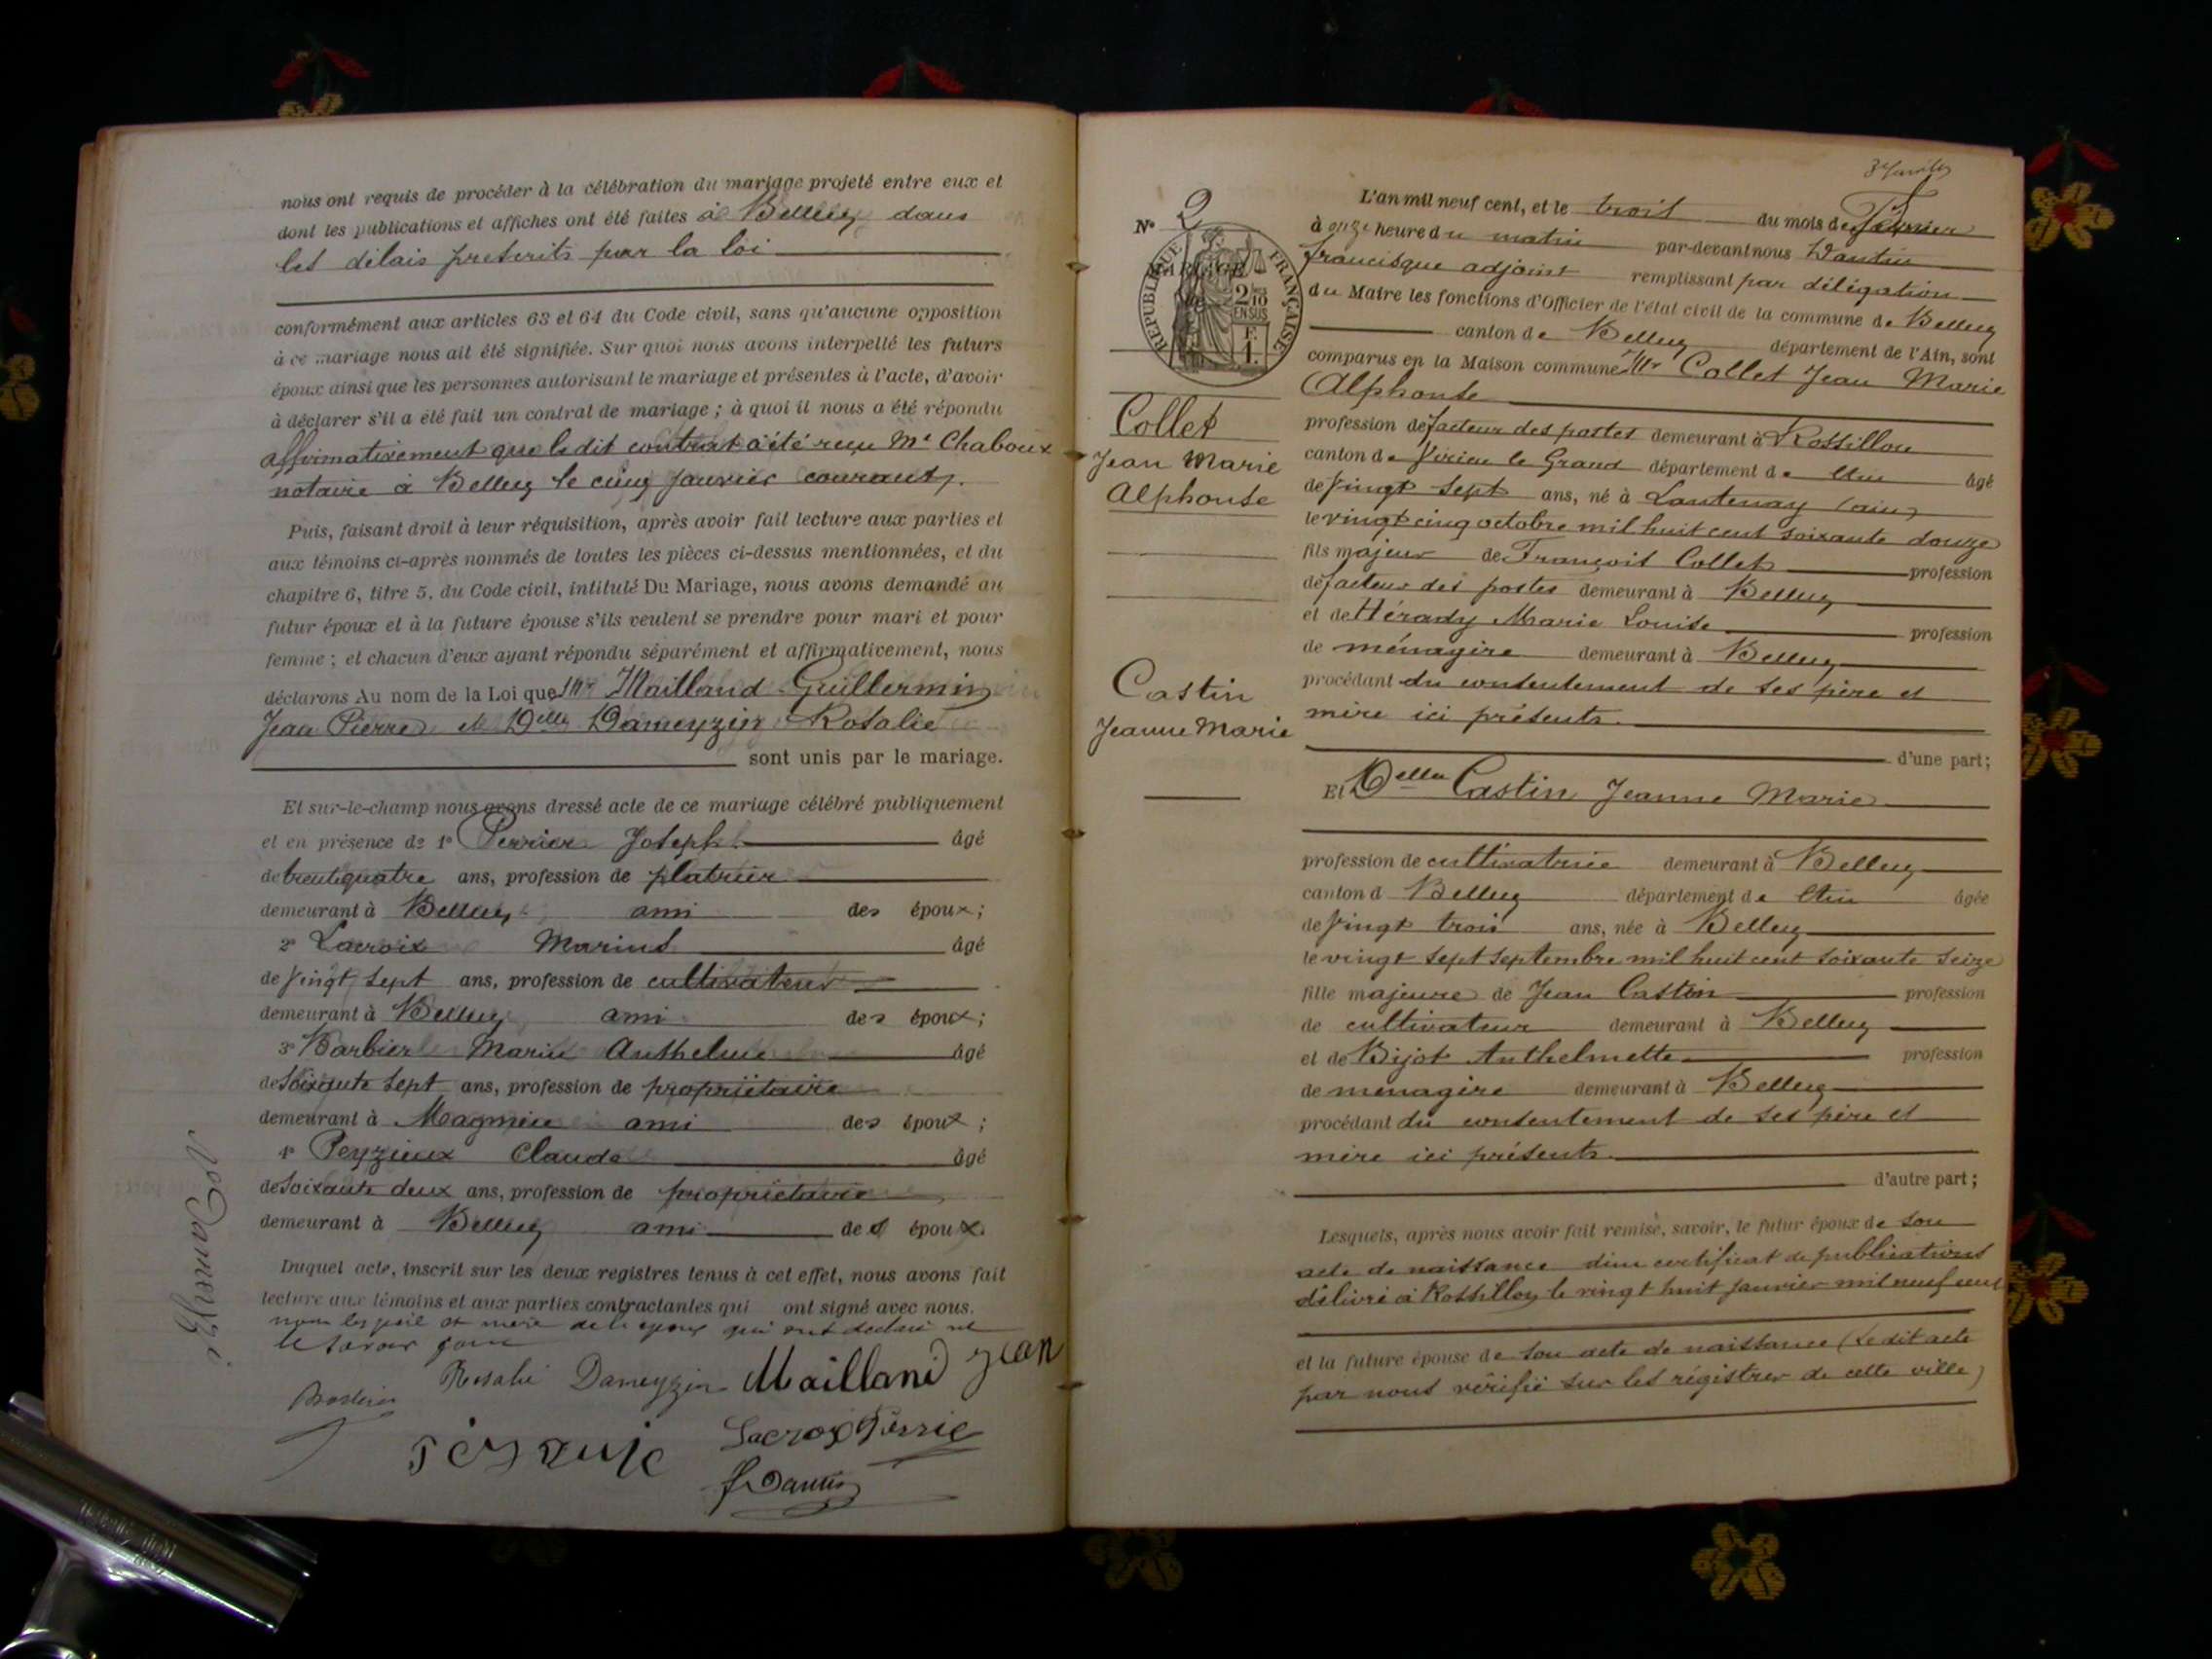 nous ont requis de procéder à la célébration du mariage projeté entre eux et
dont les publications et affiches ont été faites à Belley dans
les délais prescrits par la loi
conformément aux articles 63 et 64 du Code civil, sans qu'aucune opposition
à ce mariage nous ait été signifiée. Sur quoi nous avons interpellé les futurs
époux ainsi que les personnes autorisant le mariage et présentes à l'acte, d'avoir
à déclarer s'il a été fait un contrat de mariage ; à quoi il nous a été répondu
affirmativement que le dit contrat a été reçu Me Chaboux
notaire à Belley le cinq Janvier courant.
Puis, faisant droit à leur réquisition, après avoir fait lecture aux parties et
aux témoins ci-après nommés de toutes les pièces ci-dessus mentionnées, et du
chapitre 6, titre 5, du Code civil, intitulé Du Mariage, nous avons demandé au
futur époux et à la future épouse s'ils veulent se prendre pour mari et pour
femme ; et chacun d'eux ayant répondu séparément et affirmativement, nous
déclarons Au nom de la Loi que Mr Mailland Guillermin
Jean Pierre et Delle Dameyzin Rosalie
sont unis par le mariage.
Et sur-le-champ nous avons dressé acte de ce mariage célébré publiquement
et en présence de 1° Perrier Joseph âgé
de trente quatre ans, profession de platrier
demeurant à Belley ami des époux ;
2° Lacroix Marius âgé
de vingt sept ans, profession de cultivateur
demeurant à Belley ami des époux ;
3° Barbier Marie Anthelme âgé
de soixante sept ans, profession de propriétaire
demeurant à Magnieu ami des époux ;
4° Peyzieux Claude âgé
de soixante deux ans, profession de propriétaire
demeurant à Belley ami des époux.
Duquel acte, inscrit sur les deux registres tenus à cet effet, nous avons fait
lecture aux témoins et aux parties contractantes qui ont signé avec nous.
non les père et mère de l'époux qui ont déclaré ne
le savoir faire
Rosalie Dameyzin Mailland Jean
Lacroix Perrie
F Dantin
3 Février
N° 2
MARIAGE
REPUBLIQUE FRANÇAISE
2/10
EN SUS
F.
1.
Collet
Jean Marie
Alphonse
Castin
Jeanne Marie
L'an mil neuf cent, et le trois du mois de Février
à onze heure du matin par-devant nous Dantin
Francisque adjoint remplissant par délégation
du Maire les fonctions d'Officier de l'état civil de la commune de Belley
canton de Belley département de l'Ain, sont
comparus en la Maison commune Mr Collet Jean Marie
Alphonse
profession de facteur des postes demeurant à Rossillon
canton de Virieu le Grand département de l'Ain âgé
de vingt sept ans, né à Lantenay (ain)
le vingt cinq octobre mil huit cent soixante douze
fils majeur de François Collet profession
de facteur des postes demeurant à Belley
et de Hérady Marie Louise profession
de ménagère demeurant à Belley
procédant du consentement de ses père et
mère ici présents.
d'une part ;
Et Delle Castin Jeanne Marie
profession de cultivatrice demeurant à Belley
canton d Belley département de l'Ain âgée
de vingt trois ans, née à Belley
le vingt sept septembre mil huit cent soixante seize
fille majeure de Jean Castin profession
de cultivateur demeurant à Belley
et de Bijot Anthelmette profession
de ménagère demeurant à Belley
procédant du consentement de ses père et
mère ici présents.
d'autre part ;
Lesquels, après nous avoir fait remise, savoir, le futur époux de son
acte de naissance d'un certificat de publications
délivré à Rossillon le vingt huit Janvier mil neuf cent
et la future épouse de son acte de naissance (Le dit acte
par nous vérifié sur les régistres de cette ville)